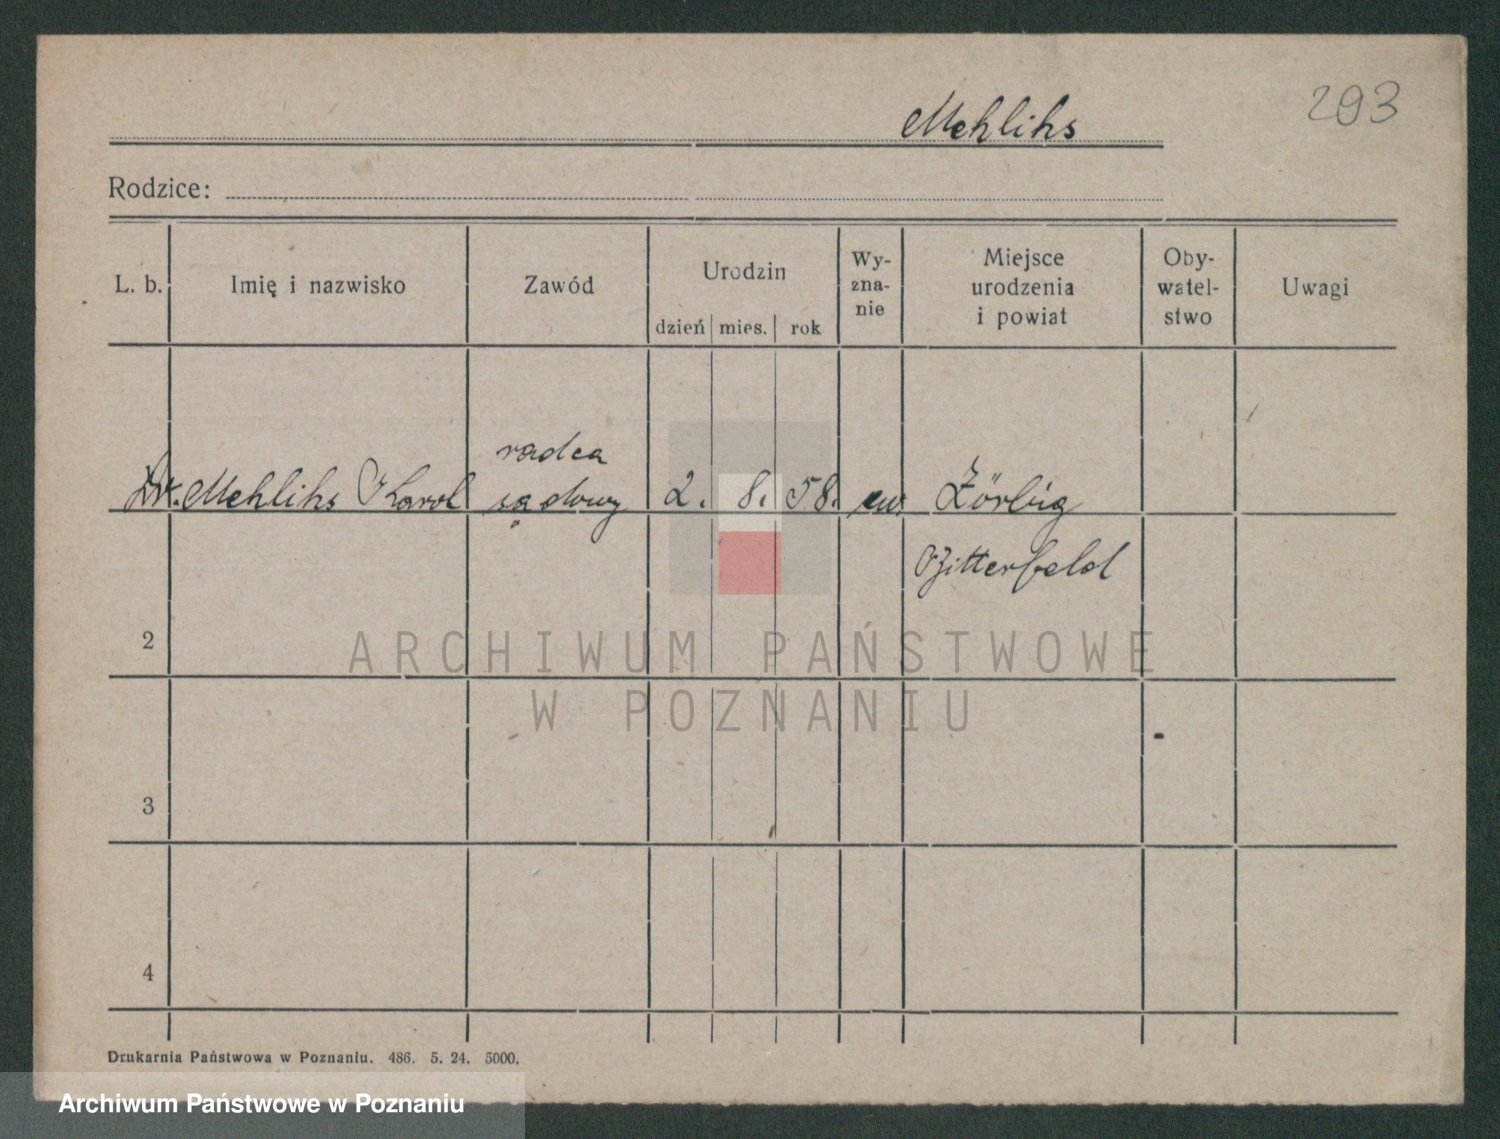 293
Mehlihs
Rodzice:
L. b.
Imię i nazwisko
Zawód
Urodzin
dzień
mies.
rok
Wy-
zna-
nie
Miejsce
urodzenia
i powiat
Oby-
watel-
stwo
Uwagi
Dr. Mehlihs Karol
radca
sądowy
2. 8. 58.
ew.
Zörbig
Bitterfeld
2
3
4
ARCHIWUM PAŃSTWOWE
W POZNANIU
Drukarnia Państwowa w Poznaniu. 486. 5. 24. 5000.
Archiwum Państwowe w Poznaniu